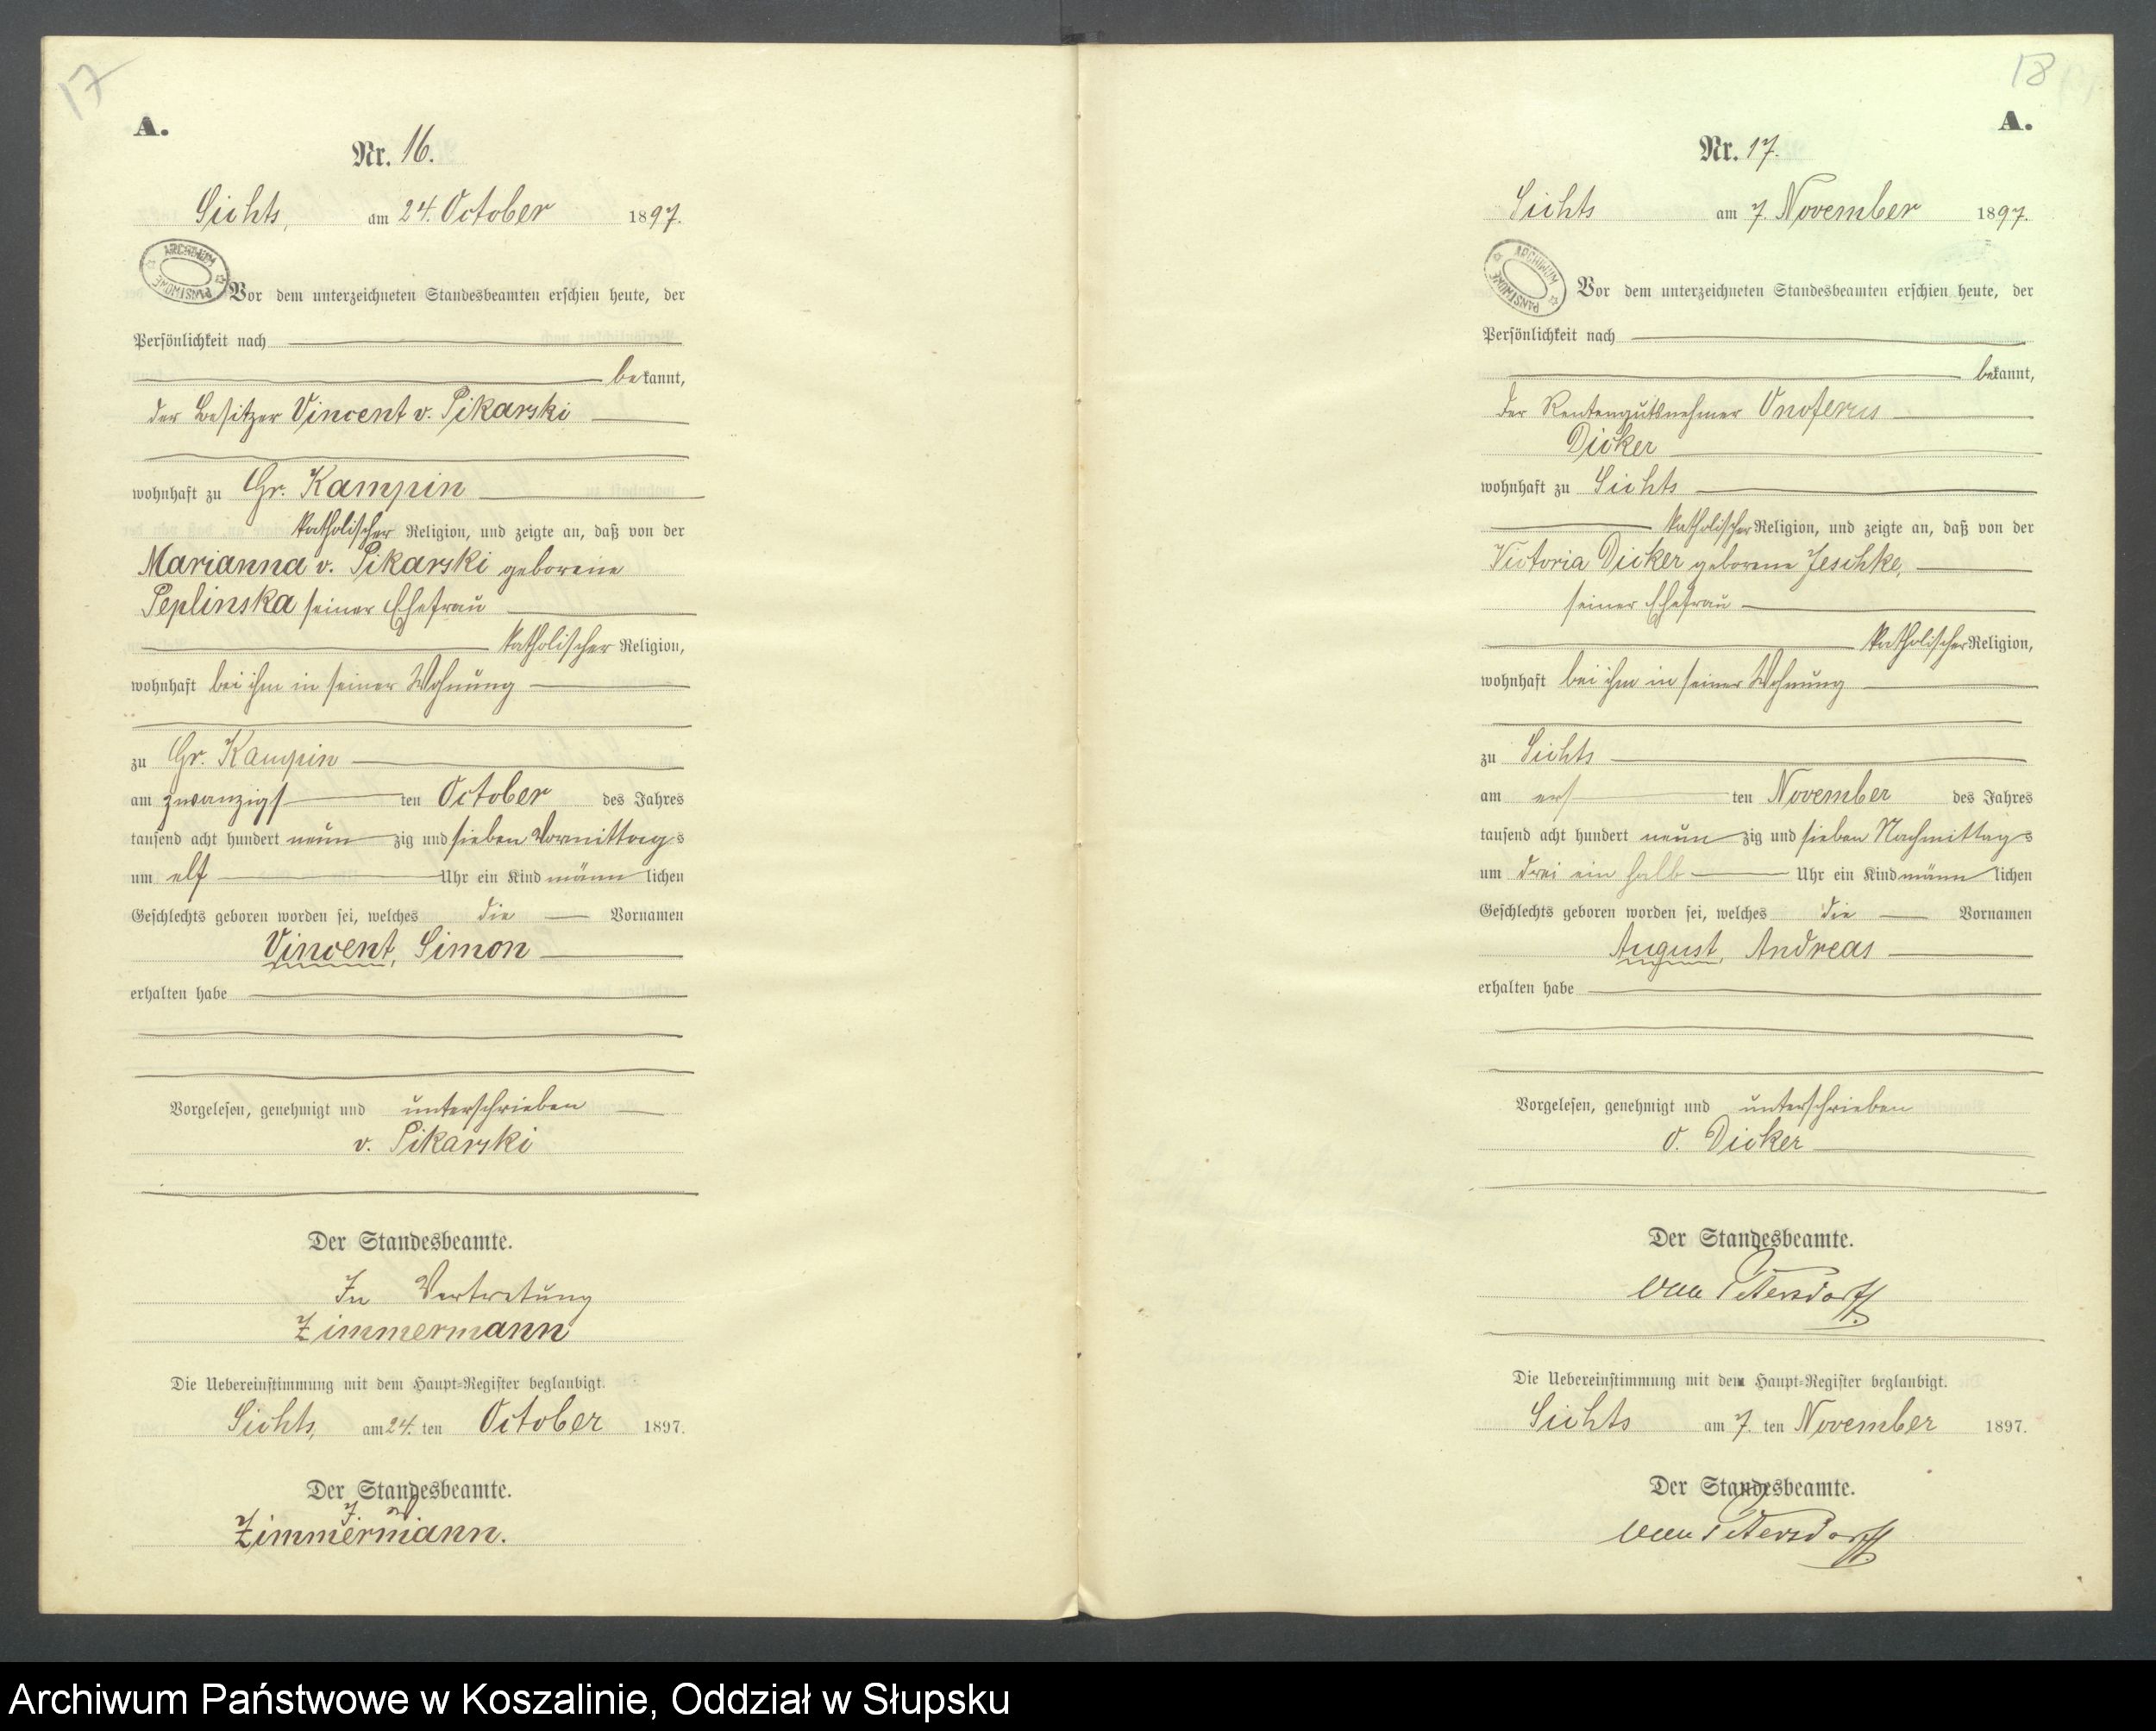 17
A.
Nr. 16.
Sichts, am 24. October 1897.
ARCHIWUM PAŃSTWOWE
Vor dem unterzeichneten Standesbeamten erschien heute, der
Persönlichkeit nach
bekannt,
der Besitzer Vincent v. Pikarski
wohnhaft zu Gr. Kampin
katholischer Religion, und zeigte an, daß von der
Marianna v. Pikarski geborene
Peplinska seiner Ehefrau
katholischer Religion,
wohnhaft bei ihm in seiner Wohnung
zu Gr. Kampin
am zwanzigsten October des Jahres
tausend acht hundert neunzig und sieben Vormittags
um elf Uhr ein Kind männlichen
Geschlechts geboren worden sei, welches die Vornamen
Vincent, Simon
erhalten habe
Vorgelesen, genehmigt und unterschrieben
v. Pikarski
Der Standesbeamte.
In Vertretung
Zimmermann
Die Uebereinstimmung mit dem Haupt-Register beglaubigt.
Sichts, am 24. ten October 1897.
Der Standesbeamte.
J. V.
Zimmermann.
18
A.
Nr. 17.
Sichts am 7. November 1897.
ARCHIWUM PAŃSTWOWE
Vor dem unterzeichneten Standesbeamten erschien heute, der
Persönlichkeit nach
bekannt,
der Rentengutsnehmer Onoferus
Dicker
wohnhaft zu Sichts
katholischer Religion, und zeigte an, daß von der
Victoria Dicker geborene Jeschke,
seiner Ehefrau
katholischer Religion,
wohnhaft bei ihm in seiner Wohnung
zu Sichts
am ersten November des Jahres
tausend acht hundert neunzig und sieben Nachmittags
um drei ein halb Uhr ein Kind männlichen
Geschlechts geboren worden sei, welches die Vornamen
August, Andreas
erhalten habe
Vorgelesen, genehmigt und unterschrieben
O. Dicker
Der Standesbeamte.
von Petersdorff.
Die Uebereinstimmung mit dem Haupt-Register beglaubigt.
Sichts am 7. ten November 1897.
Der Standesbeamte.
von Petersdorff.
Archiwum Państwowe w Koszalinie, Oddział w Słupsku